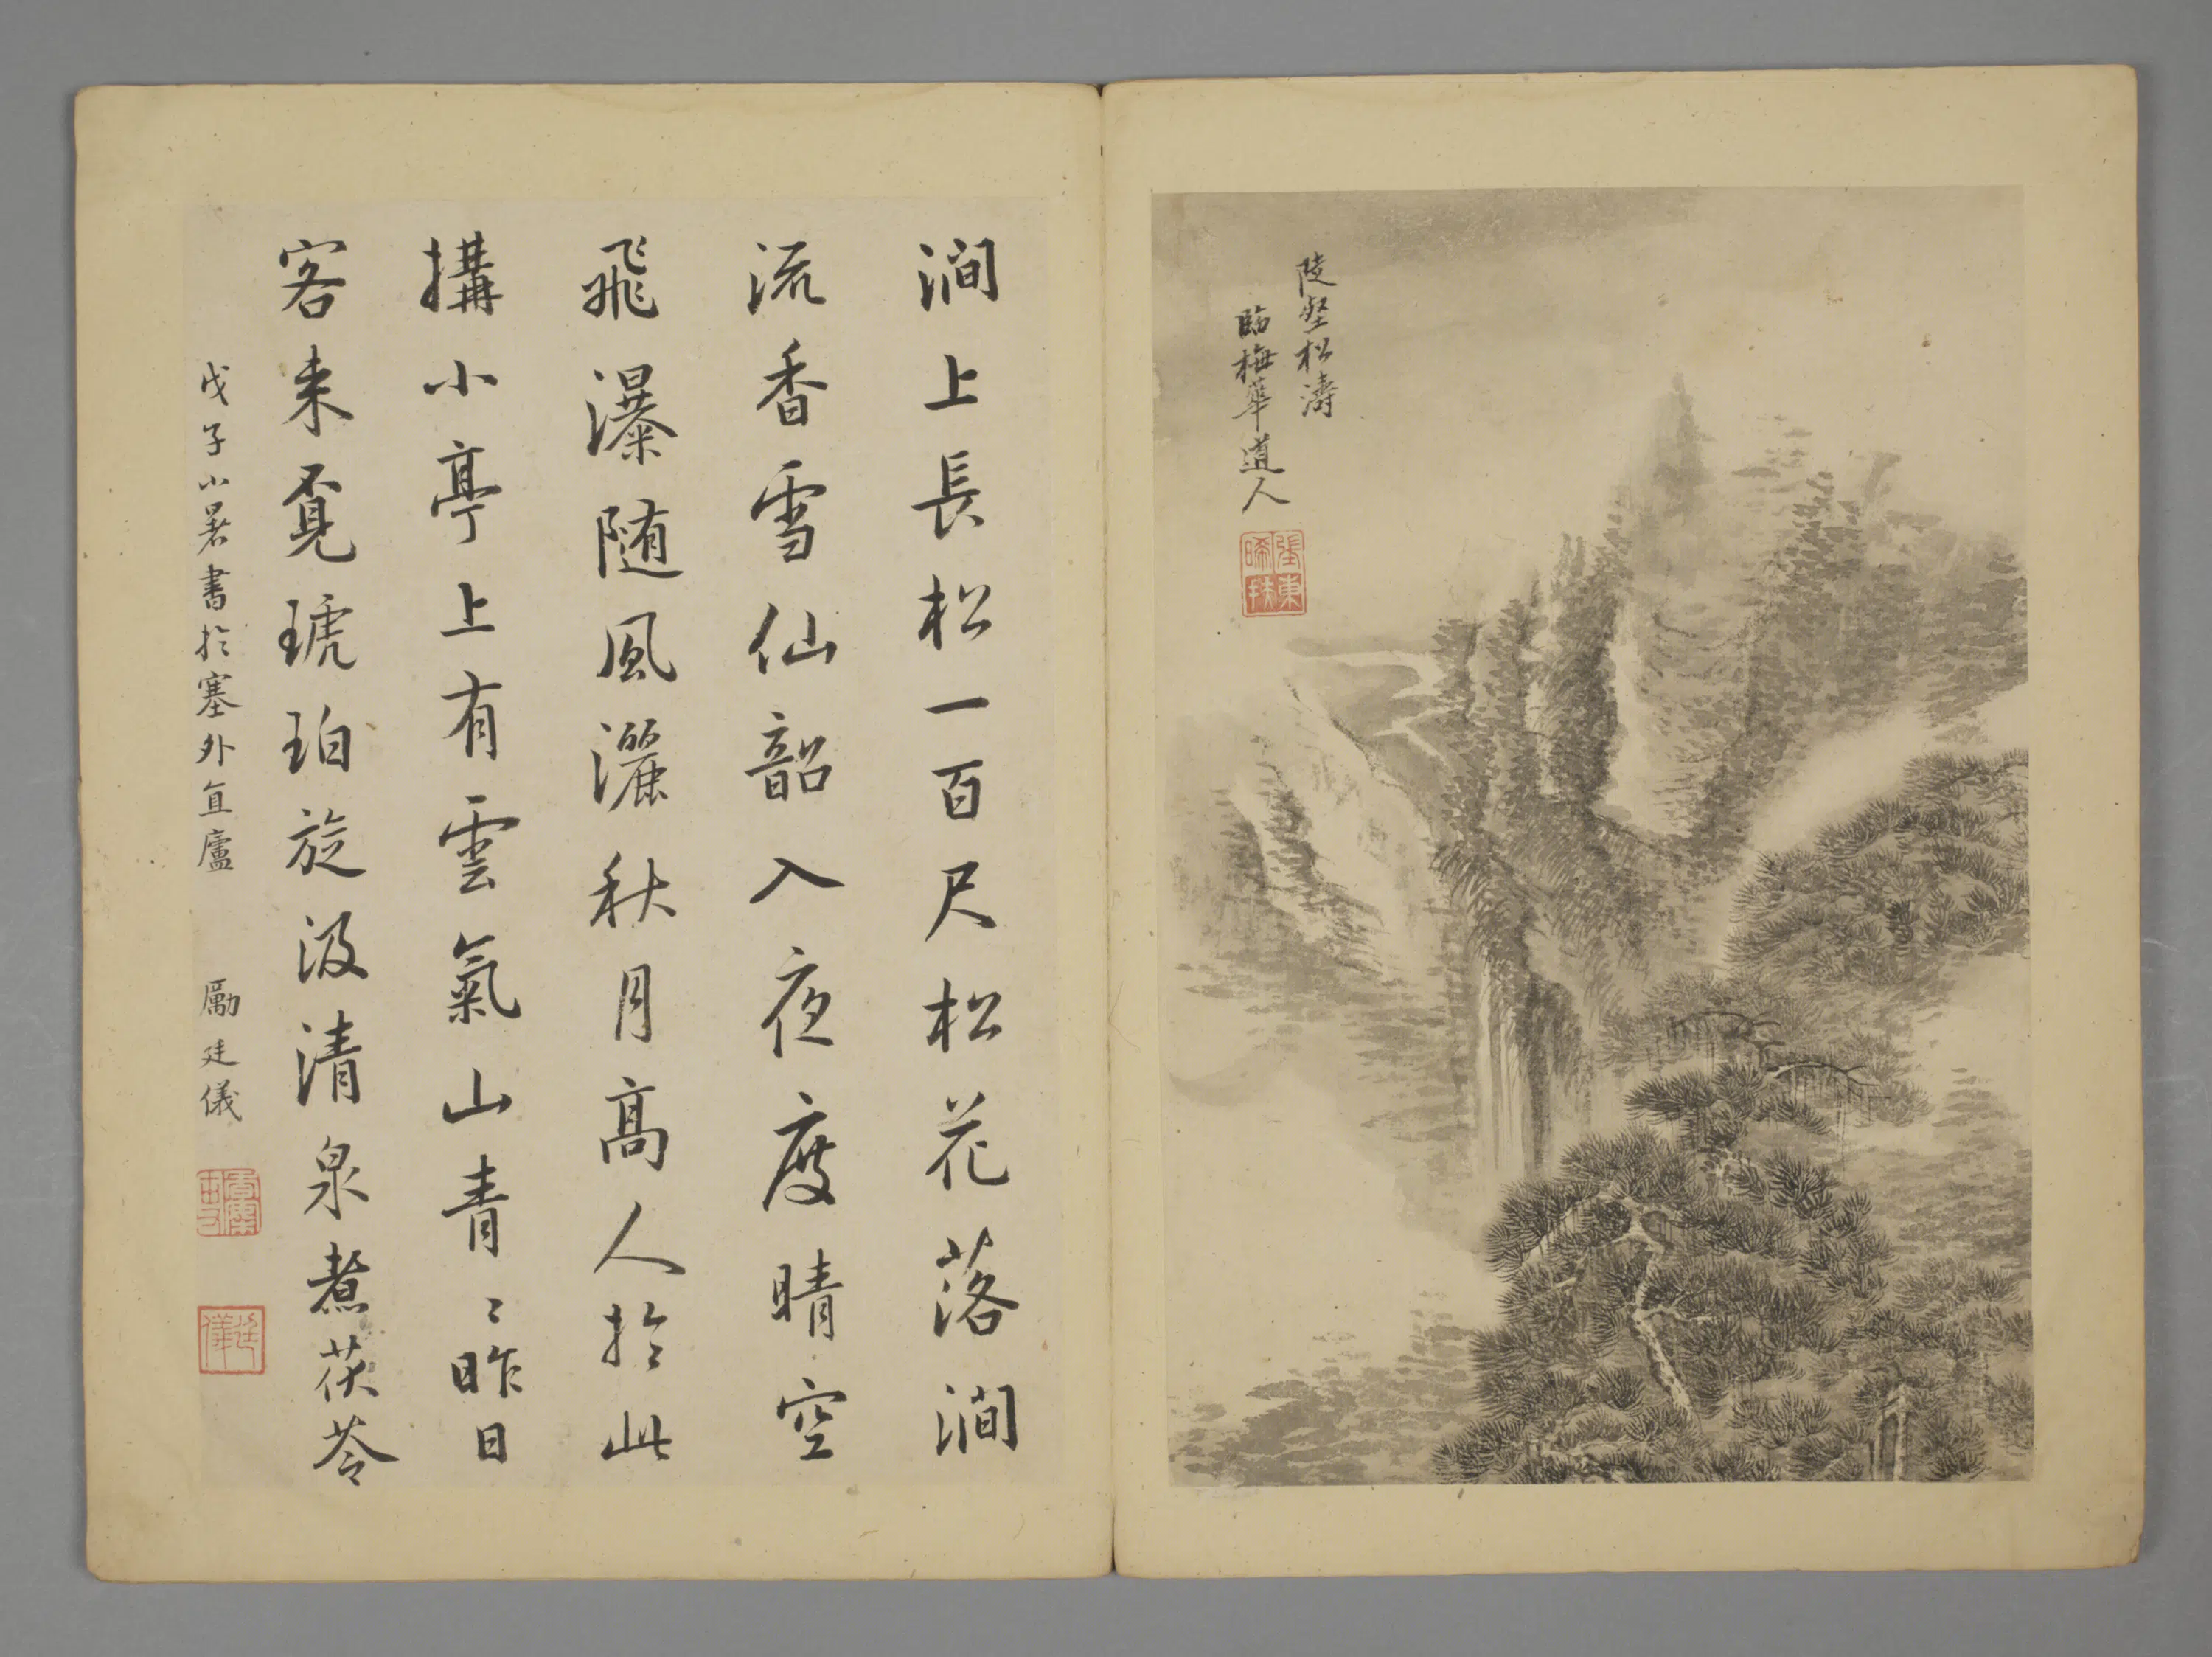 陡壑松濤
臨梅華道人
澗上長松一百尺松花落澗
流香雪仙韶入夜度晴空
飛瀑隨風灑秋月高人於此
搆小亭上有雲氣山青〻昨日
客来覓琥珀旋汲清泉煮茯苓
戊子小暑書於塞外直廬 勵廷儀
廷儀